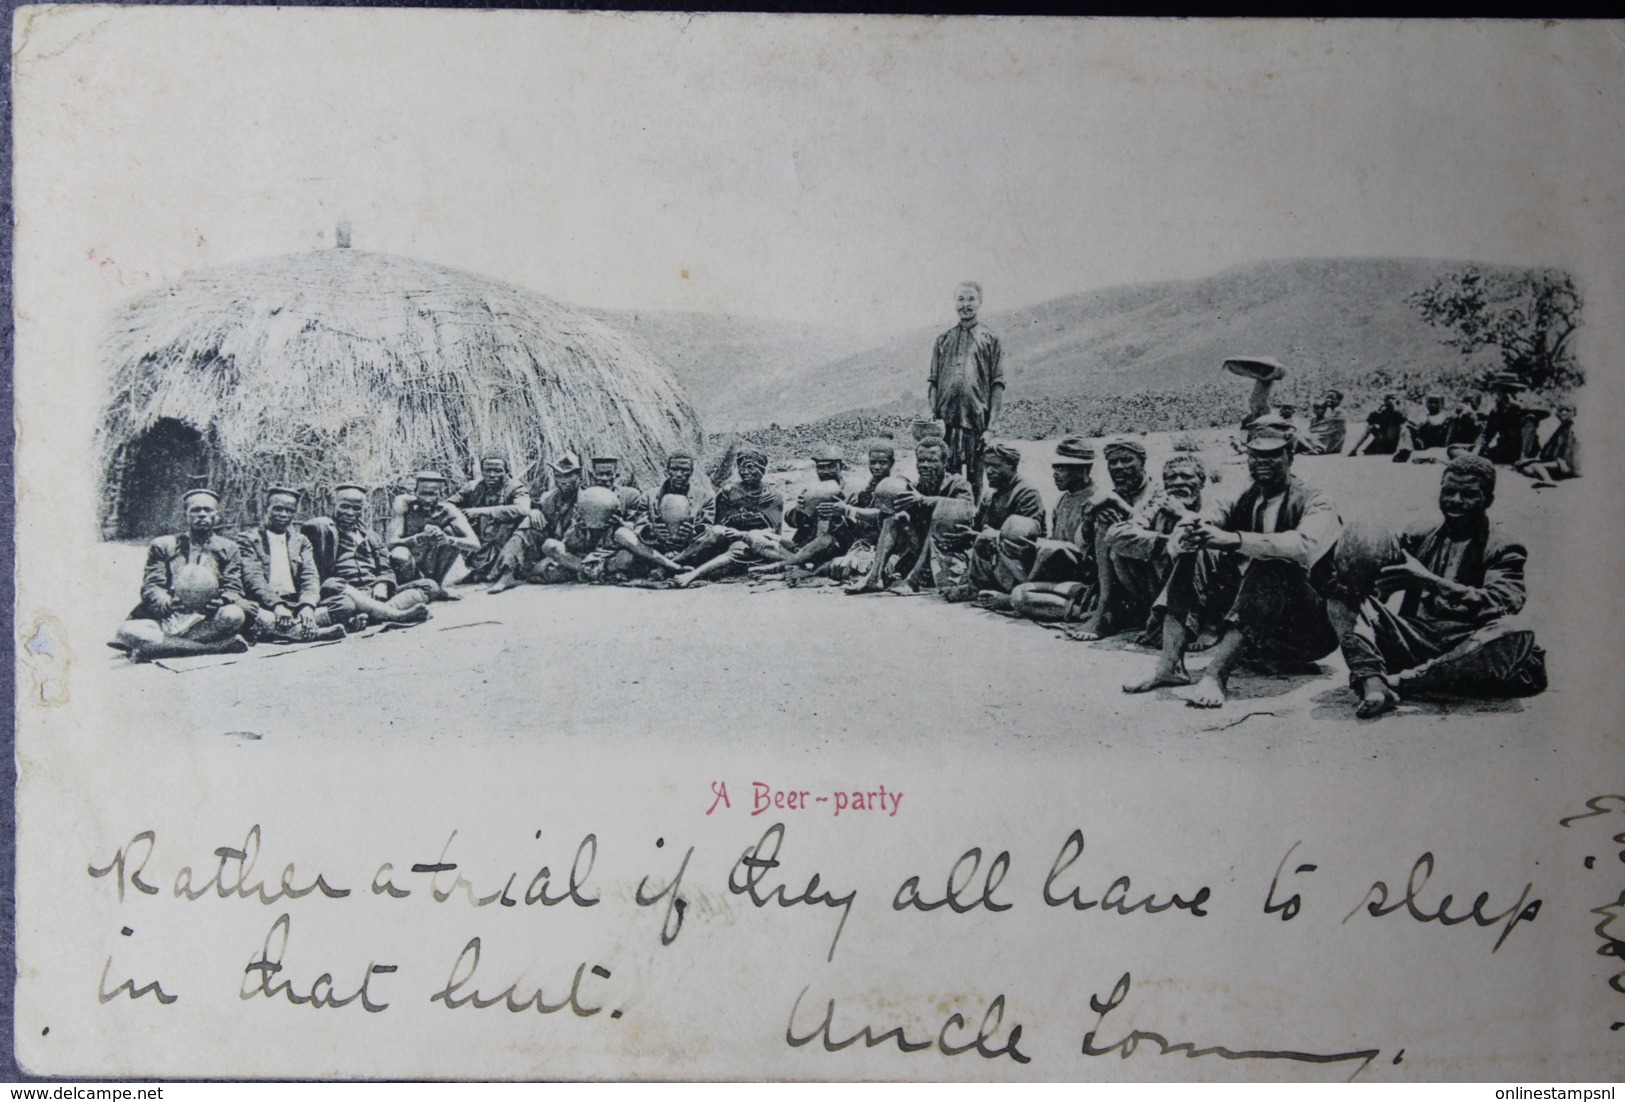 A Beer-party
Rather a trial if they all have to sleep
in that hut.
Uncle Tommy.
onlinestampsnl